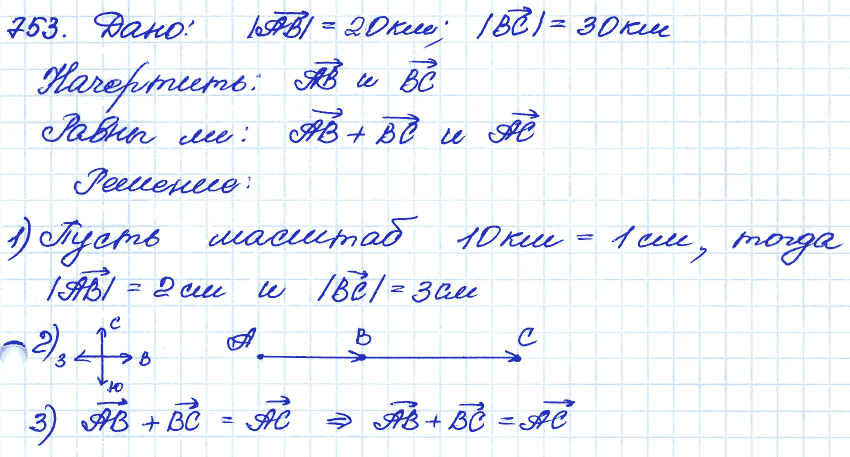 753. Дано: |AB| = 20км; |BC| = 30км
Начертить: AB и BC
Равны ли: AB + BC и AC
Решение:
1) Пусть масштаб 10км = 1см, тогда
|AB| = 2см и |BC| = 3см
2) С З В Ю A B C
3) AB + BC = AC ⇒ AB + BC = AC